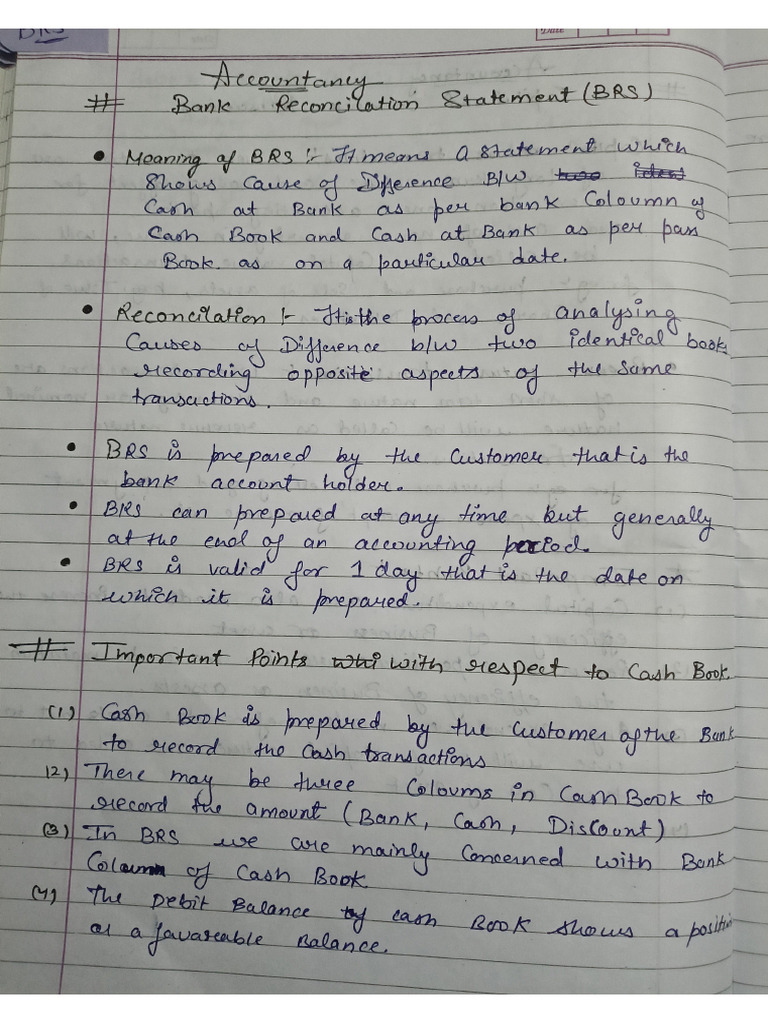 BRS
Date
Accountancy
# Bank Reconcilation Statement (BRS)
• Meaning of BRS :- It means a statement which
shows cause of Difference B/w
Cash at Bank as per bank Coloumn of
Cash Book and Cash at Bank as per pass
Book. as on a particular date.
• Reconcilation :- It is the process of analysing
Causes of Difference b/w two identical books
recording opposite aspects of the same
transactions.
• BRS is prepared by the Customer that is the
bank account holder.
• BRS can prepared at any time but generally
at the end of an accounting period.
• BRS is valid for 1 day that is the date on
which it is prepared.
# Important Points whi with respect to Cash Book.
(1) Cash Book is prepared by the Customer of the Bank
to record the Cash transactions
(2) There may be three Coloums in Cash Book to
record the amount (Bank, Cash, Discount)
(3) In BRS we are mainly Concerned with Bank
Coloumn of Cash Book
(4) The Debit Balance of cash Book shows a positive
or a favareable Balance.